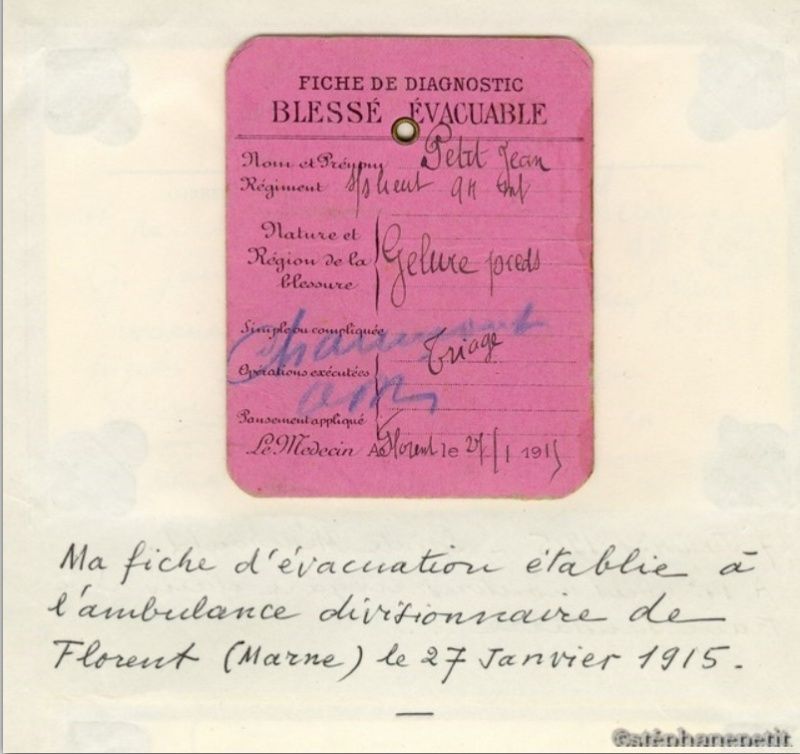 FICHE DE DIAGNOSTIC
BLESSÉ ÉVACUABLE
Nom et Prénom Petit Jean
Régiment s/slieut 94 inf
Nature et
Région de la
blessure
Gelure pieds
Simple ou compliquée
Triage
Opérations exécutées
Pansement appliqué
Le Médecin A Florent le 27/1 1915
Ma fiche d'évacuation établie à
l'ambulance divisionnaire de
Florent (Marne) le 27 Janvier 1915.
©stéphanepetit